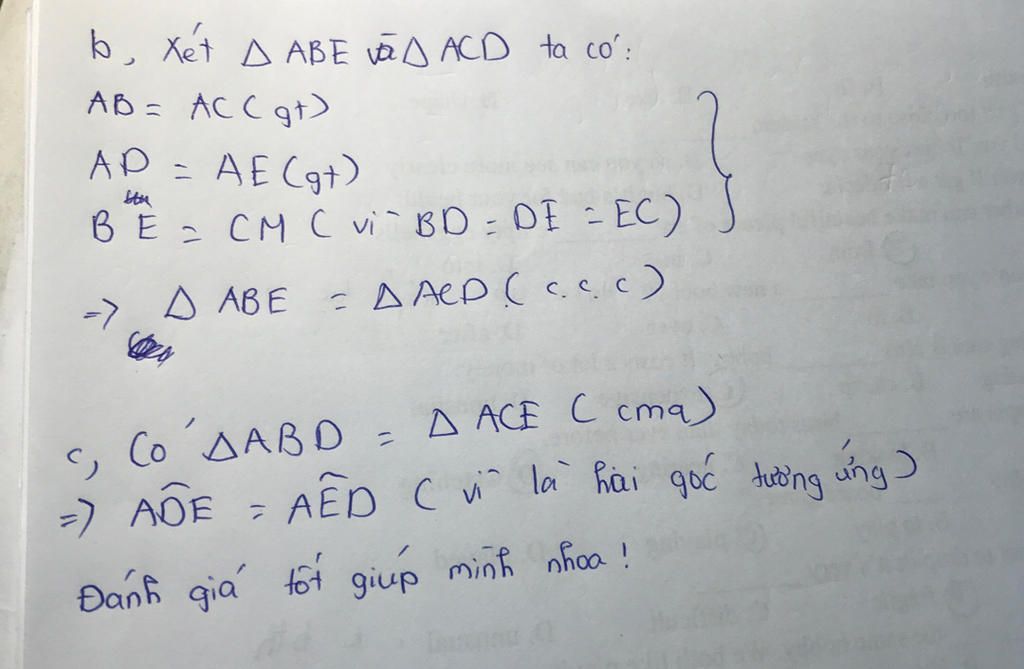 b, Xét Δ ABE và Δ ACD ta có:
AB = AC (gt)
AD = AE (gt)
BE = CM ( vì BD = DE = EC)
=> Δ ABE = Δ ACD ( c.c.c)
c, Có ΔABD = Δ ACE ( cma)
=> AD̂E = AÊD ( vì là hài góc tương ứng)
Đánh giá tốt giúp mình nhoa !